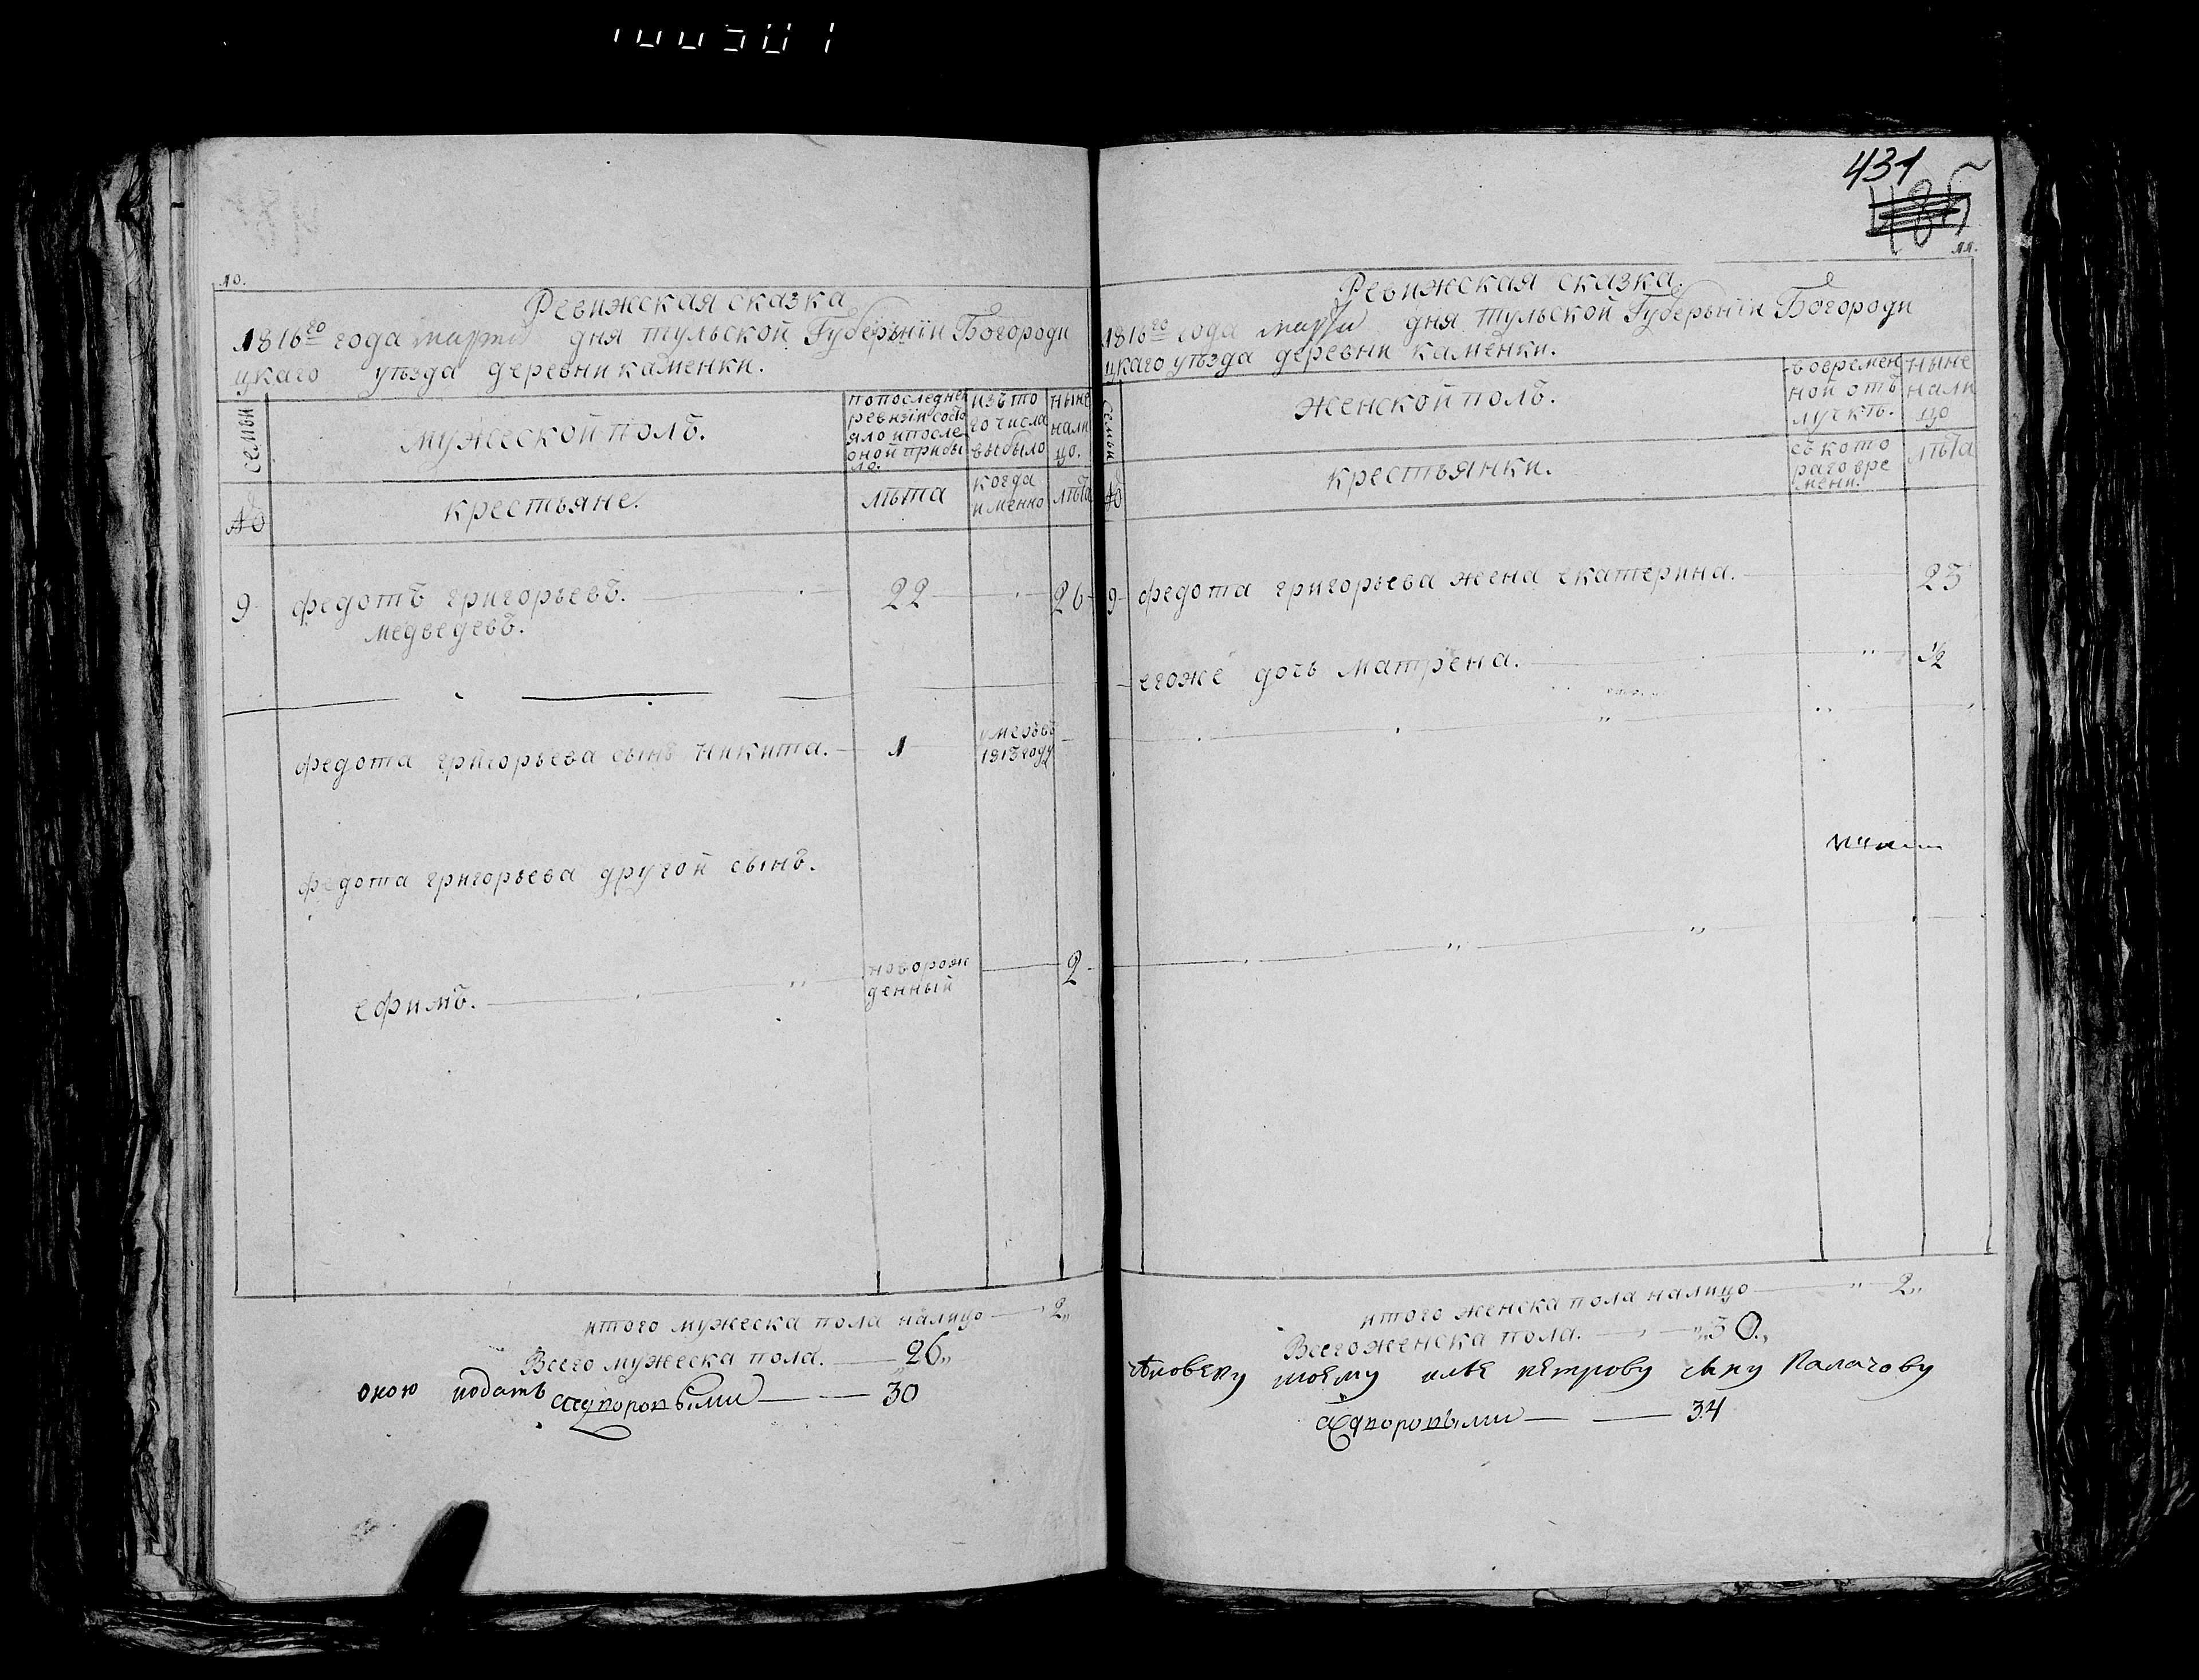 431
10.
Ревижская сказка
1816го года марта дня тульской Губерьнїи Богороди
цкаго уѣзда деревни каменки.
семьи
мужеской полъ.
по последней
ревизїи состо
яло и после
оной прибы
ло.
изъ то
го числа
выбыло
ныне
нали
цо.
№
крестьяне.
лѣта
когда
именно
лѣта
9 федотъ григорьевъ. 22 26
медведевъ.
федота григорьева сынъ никита. 1 умеръ въ
1813 году
федота григорьева другой сынъ.
ефимъ. новорож
денный 2
итого мужеска пола налицо 2„
Всего мужеска пола. 26„
оною подать
30
11.
Ревижская сказка.
1816го года марта дня тульской Губерьнїи Богороди
цкаго уѣзда деревни каменки.
семьи
женской полъ.
во времен
ной отъ
лучкѣ.
ныне
нали
цо
№
крестьянки.
съ кото
раго вре
мени.
лѣта
9 федота григорьева жена екатерина. 23
егоже дочь матрена. 1/2
итого женска пола налицо „ 2„
Всего женска пола. „30„
человеку моему илье петрову сыну Палачову
34